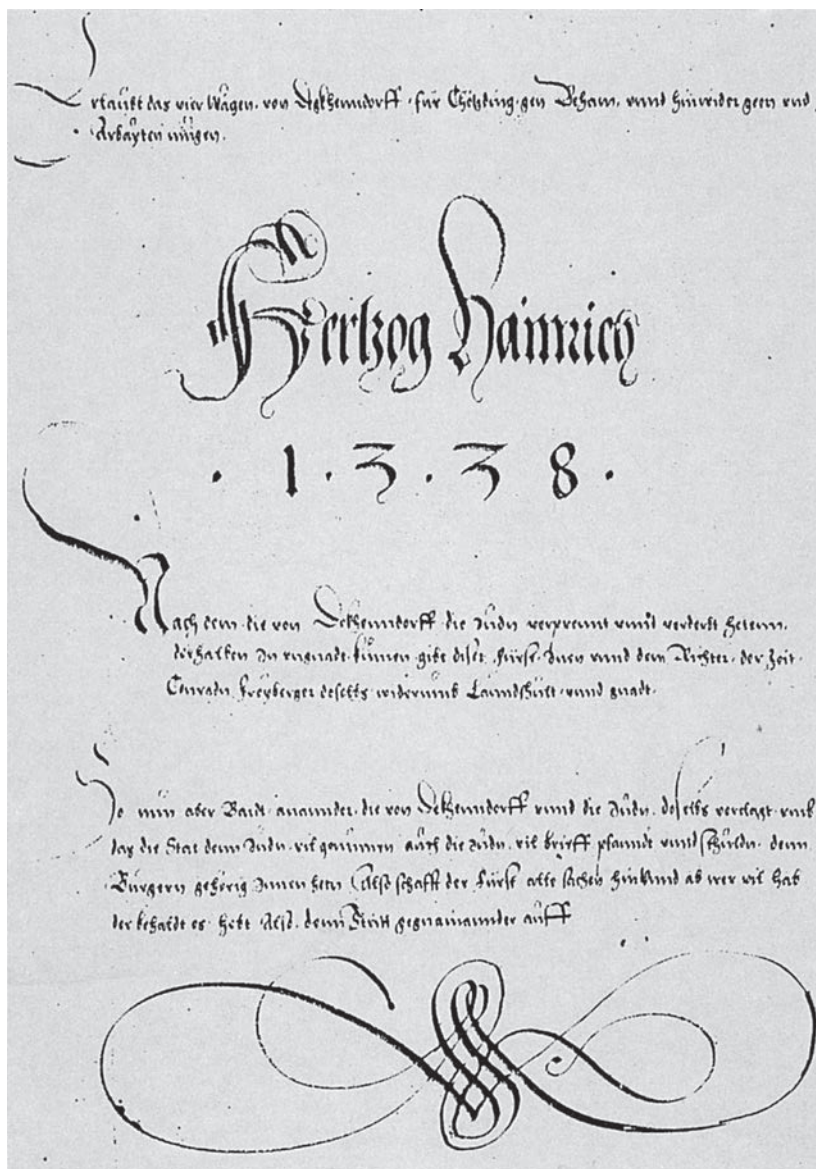 Erlaubt das vier Wägen. von Degkhenndorff. für Chötzting. gen Beham. vnnd hinwider geen vnd
Arbayten mügen.
Hertzog Hainrich
. 1 . 3 . 3 8 .
Nach dem. die von Dekhenndorff. die Judn verprennt vnnd verderbt hetenn.
derhalben In vngnadt. kumen. gibt diser. Fürst. Inen vnnd dem Richter. der Zeit.
Conradn Freyberger deselbs widerumb Lanndshült. vnnd gnadt.
So nun aber Baidt. anainnder. die von Dekhenndorff vnnd die Judn. deselbs verclagt. vmb
das die Stat denn Judn. vil genumen auch die Judn. vil brieff pfanndt vnnd schuldn. denn
Bürgern gehörig Innen hetn Also schafft der Fürst alle sachen hin vnnd ab wer vil hab
der behaldt es. hebt Also. denn Stritt gegnainannder auff